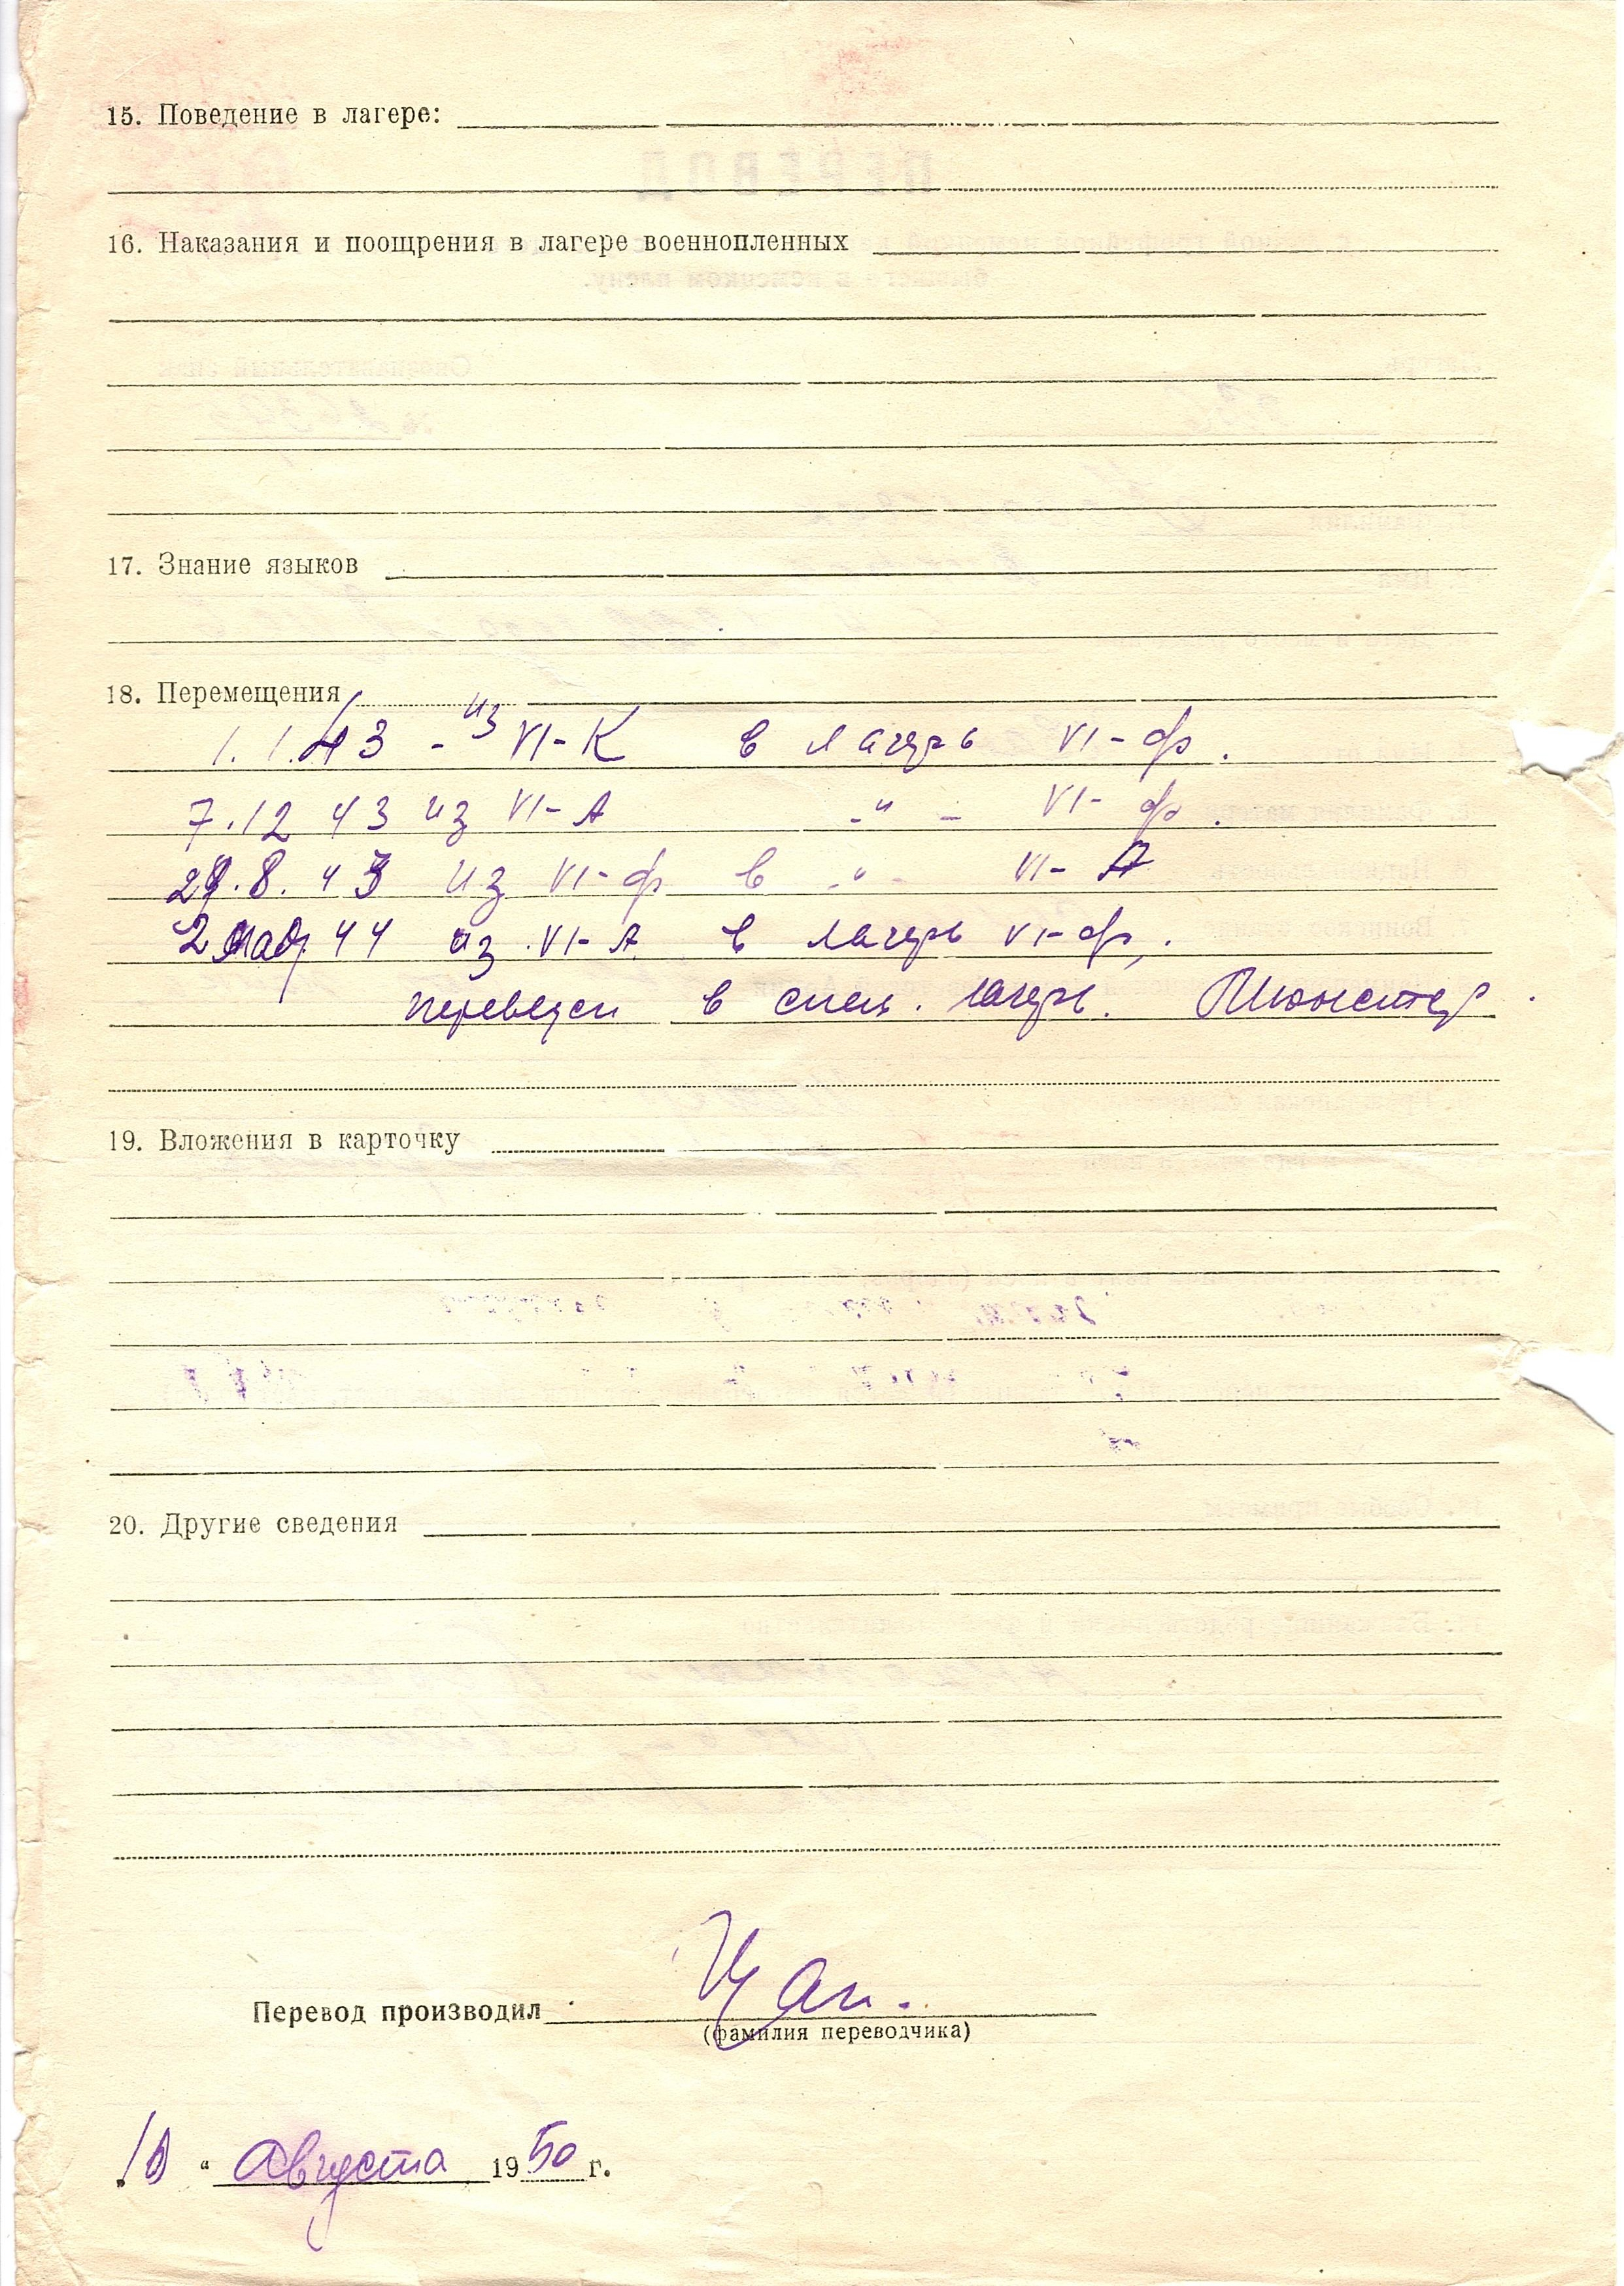 15. Поведение в лагере:
16. Наказания и поощрения в лагере военнопленных
17. Знание языков
18. Перемещения
1.1.43 - из VI-К в лагерь VI-ф.
7.12 43 из VI-А -"- VI-ф.
29.8.43 из VI-ф в -"- VI-А
2 мая 44 из VI-А в лагерь VI-ф,
переведен в спец. лагерь. Мюнстер.
19. Вложения в карточку
20. Другие сведения
Перевод производил
(фамилия переводчика)
„10 “ Августа 1950 г.